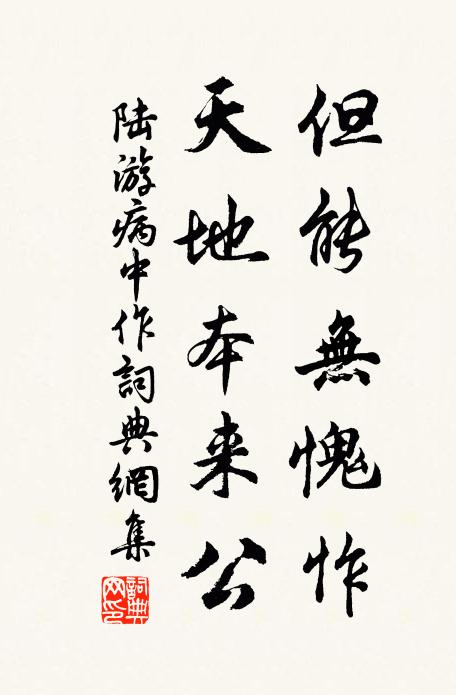 但能無愧怍
天地本来公
陸游病中作詞典網集
詞典網印